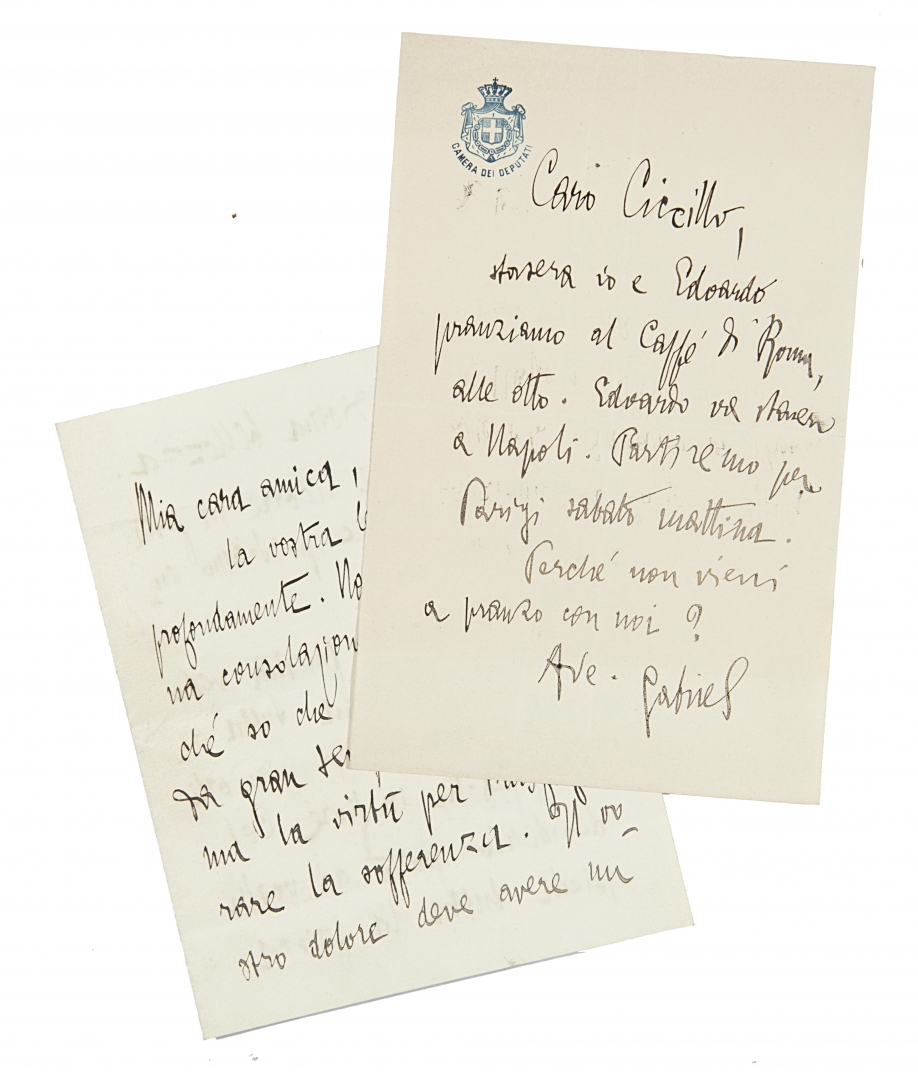 CAMERA DEI DEPUTATI
Caro Ciccillo,
stasera io e Edoardo
pranziamo al Caffé di Roma,
alle otto. Edoardo va stasera
a Napoli. Partiremo per
Parigi sabato mattina.
Perché non vieni
a pranzo con noi?
Ave. Gabriel
Mia cara amica,
la vostra
profondamente.
na
ché so che
da gran
ma la virtù per
rare la sofferenza. Il vo-
stro dolore deve avere un